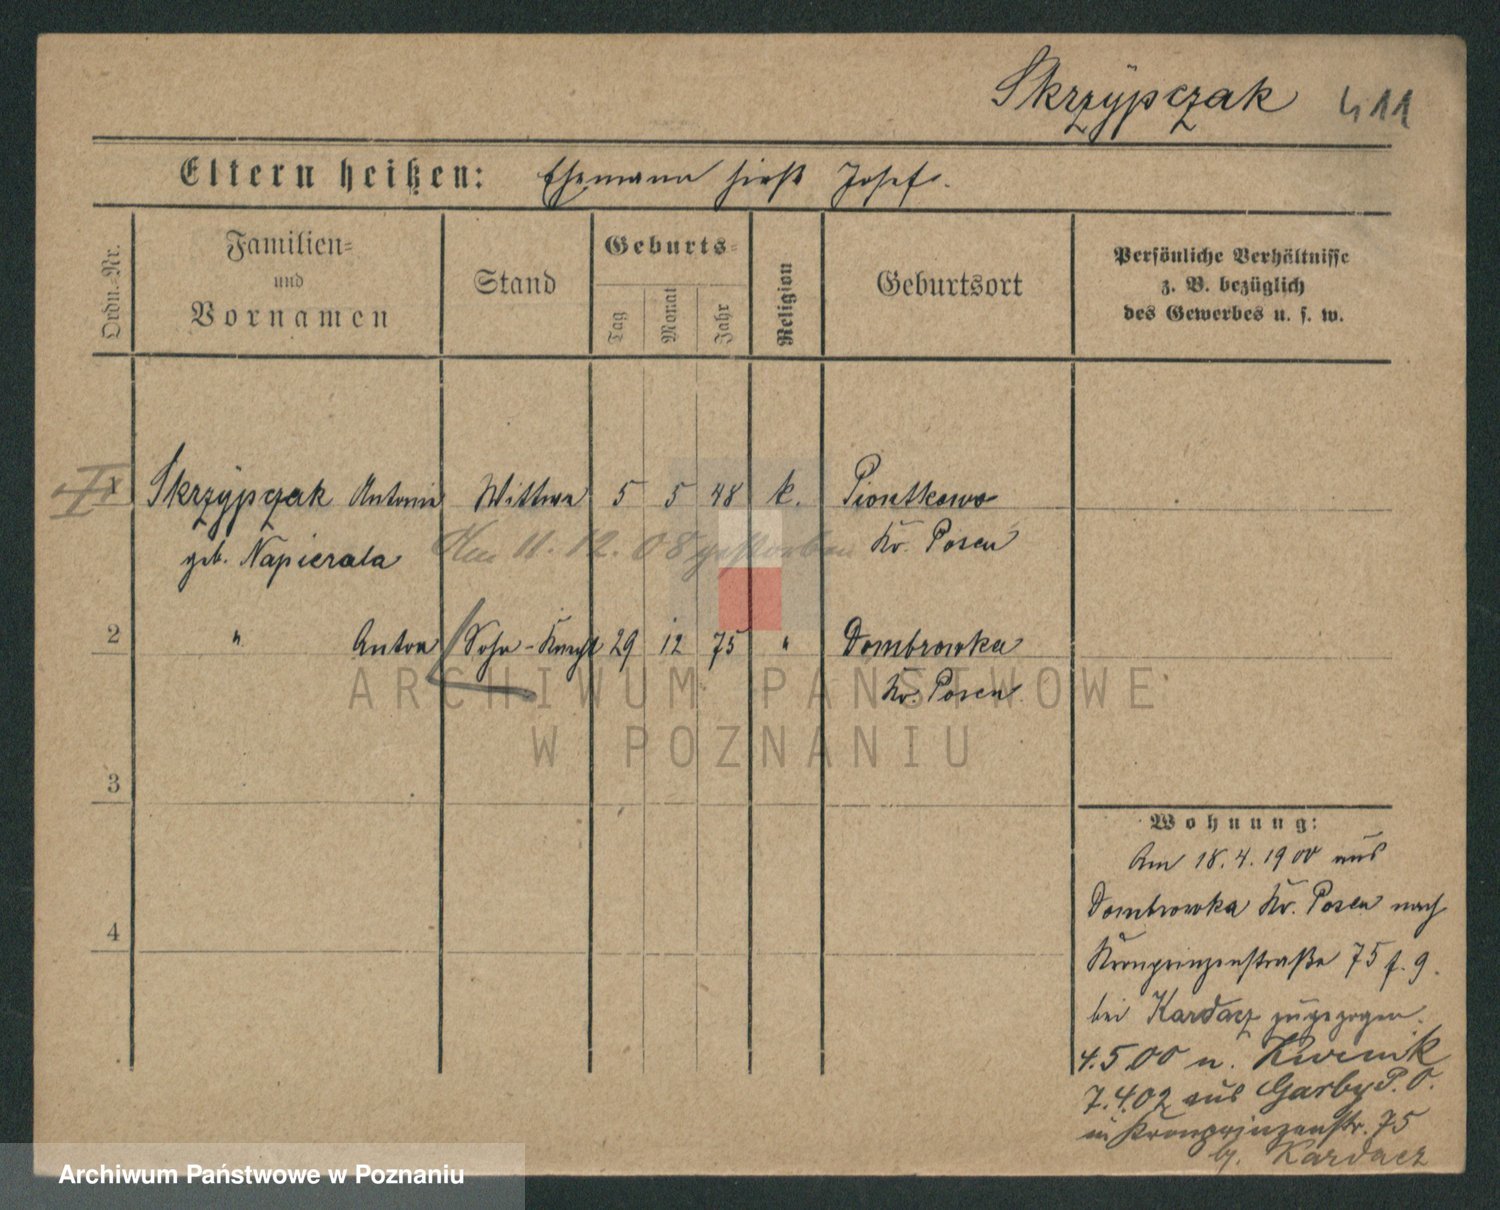 Skrzÿpczak 411
Eltern heißen: Ehemann hieß Josef.
Ordn.-Nr.
Familien-
und
Vornamen
Stand
Geburts-
Tag
Monat
Jahr
Religion
Geburtsort
Persönliche Verhältnisse
z. B. bezüglich
des Gewerbes u. s. w.
1 Skrzÿpczak Antonie Wittwe 5 5 48 k. Piontkowo
geb. Napierala Am 11.12.08 gestorben Kr. Posen
2 " Anton Sohn - Knecht 29 12 75 " Dombrowka
Kr. Posen
ARCHIWUM PAŃSTWOWE
W POZNANIU
3
4
Wohnung:
Am 18.4.1900 aus
Dombrowka Kr. Posen nach
Kronprinzenstraße 75 f. 9.
bei Kardacz zugezogen.
4.5.00 n. Kurnik
7.4.02 aus Garby P.O.
in Kronprinzenstr. 75
b. Kardacz
Archiwum Państwowe w Poznaniu